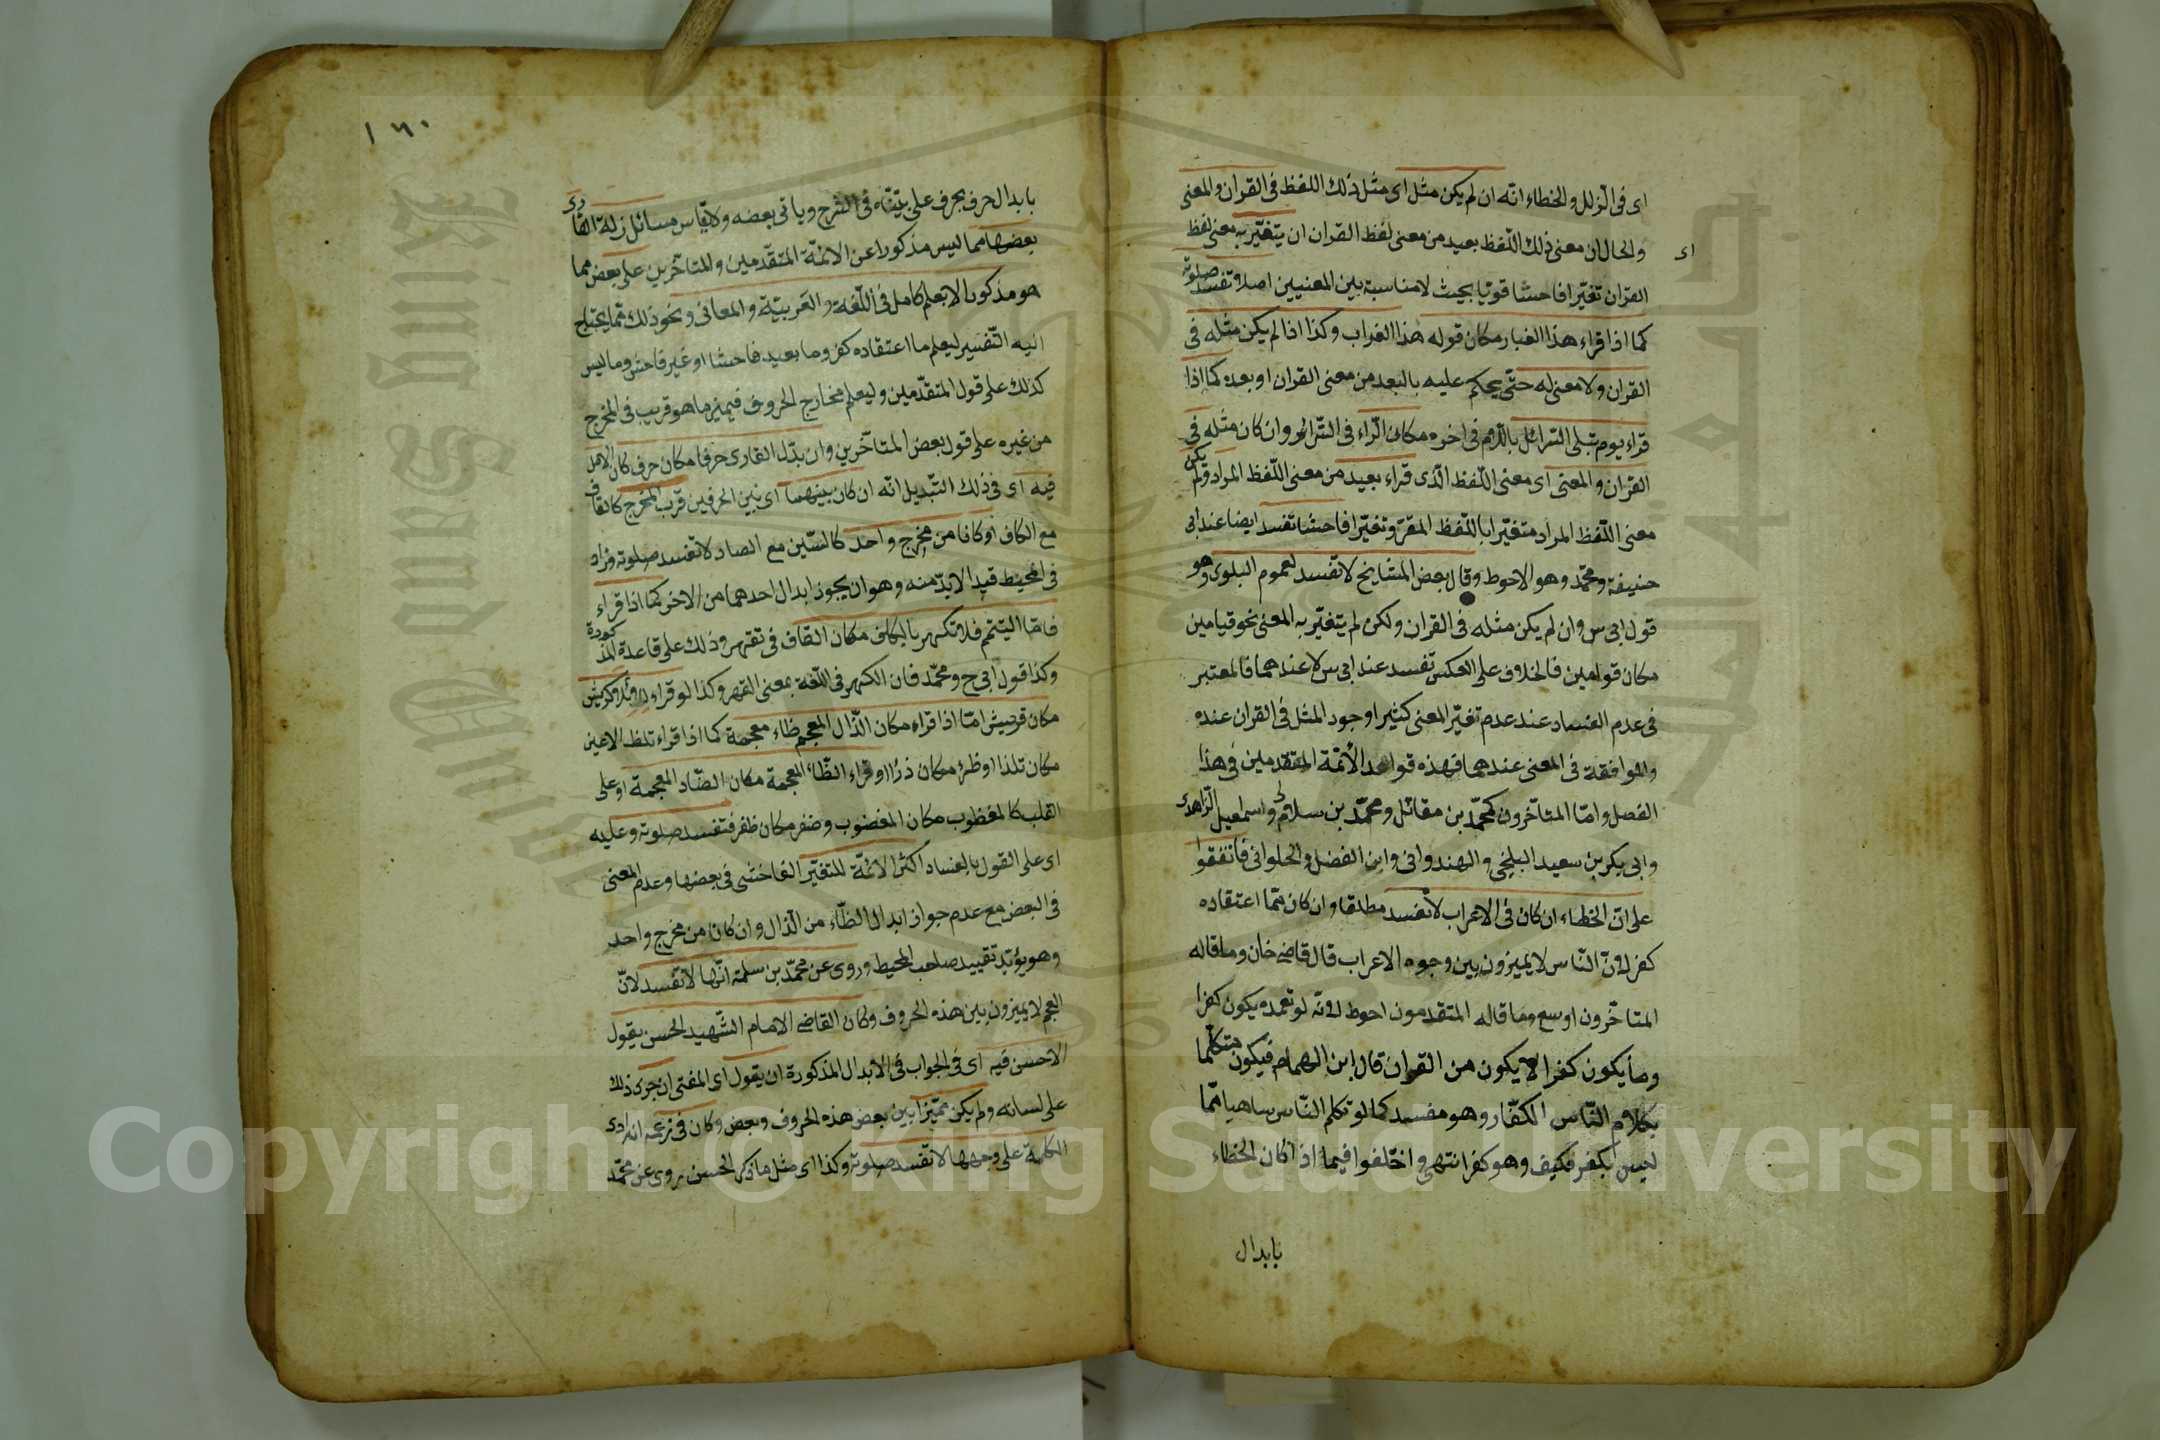 اى فى الزلل والخطاء انّه ان لم يكن مثل اى مثل ذلك اللفظ فى القران والمعنى
والحال ان معنى ذلك اللّفظ بعيد من معنى لفظ القران ان يتغيّر به معنى لفظ
اى
القران تغيّرا فاحشا قويّا بحيث لا مناسبة بين المعنيين اصلا وتفسد صلوته
كما اذا قراء هذا الغبار مكان قوله هذا الغراب وكذا اذا لم يكن مثله فى
القران ولا معنى له حتّى يحكم عليه بالبعد من معنى القران او بعده كما اذا
قراء يوم تبلى السّرائل باللّام فى اخره مكان الرّاء فى السّرائر وان كان مثله فى
القران والمعنى اى معنى اللّفظ الّذى قراء بعيد من معنى اللّفظ المراد ولم يكن
معنى اللّفظ المراد متغيّرا باللّفظ المقرّو تغيّرا فاحشا تفسد ايضا عند ابى
حنيفة ومحمّد وهو الاحوط وقال بعض المشايخ لا تفسد لعموم البلوى وهو
قول ابى س وان لم يكن مثله فى القران ولكن لم يتغيّر به المعنى نحو قيامين
مكان قوامين فالخلاف على العكس تفسد عند ابى س لا عندهما فالمعتبر
فى عدم الفساد عند عدم تغيّر المعنى كثيرا وجود المثل فى القران عنده
والموافقة فى المعنى عندهما فهذه قواعد الأئمّة المتقدمين فى هذا
الفصل وامّا المتأخّرون كمحمّد بن مقاتل ومحمّد بن سلام واسمعيل الزّاهدى
وابى بكر بن سعيد البلخى والهندوانى وابن الفضل والحلوانى فاتفقوا
على انّ الخطاء ان كان فى الاعراب لا تفسد مطلقا وان كان ممّا اعتقاده
كفر لانّ النّاس لا يميزون بين وجوه الاعراب قال قاضى خان وما قاله
المتأخّرون اوسع وما قاله المتقدمون احوط لانّه لو تعمده يكون كفرا
وما يكون كفرا لا يكون من القران قال ابن الهمام فيكون متكلّما
بكلام النّاس الكفّار وهو مفسد كما لو تكلم النّاس ساهيا ممّا
ليس بكفر فكيف وهو كفر انتهى واختلفوا فيما اذا كان الخطاء
بابدال
١٦٠
بابدال حرف بحرف على فى الشرح وياتى بعضه ولا يقاس مسائل زلة القارى
بعضها مما ليس مذكورا عن الائمّة المتقدّمين والمتأخّرين على بعض مما
هو مذكور الا بعلم كامل فى اللّغة والعربيّة والمعانى ونحو ذلك ممّا يحتاج
اليه التّفسير ليعلم ما اعتقاده كفر وما بعيد فاحشا او غير فاحش وما ليس
كذلك على قول المتقدّمين وليعلم مخارج الحروف فيميز ما هو قريب فى المخرج
من غيره على قول بعض المتأخّرين وان بدّل القارى حرفا مكان حرف كان الاصل
فيه اى فى ذلك التّبديل انّه ان كان بينهما اى بين الحرفين قرب المخرج كالقاف
مع الكاف او كانا من مخرج واحد كالسّين مع الصاد لا تفسد صلوته وزاد
فى المحيط قيدا لا بدّ منه وهو ان يجوز ابدال احدهما من الاخر كما اذا قراء
فامّا اليتيم فلا تكهر بالكاف مكان القاف فى تقهر وذلك على قاعدة المذكورة
وكذا قول ابى ح ومحمّد فان الكهر فى اللّغة بمعنى القهر وكذا لو قراء كريش
مكان قريش امّا اذا قراء مكان الذّال المعجم ظاء معجمة كما اذا قراء تلظ الاعين
مكان تلذ او ظرأ مكان ذرأ او قراء الظّاء المعجمة مكان الضّاد المعجمة او على
القلب كالمغظوب مكان المغضوب وضفر مكان ظفر فتفسد صلوته وعليه
اى على القول بالفساد اكثر الائمّة للتغيّر الفاحش فى بعضها وعدم المعنى
فى البعض مع عدم جواز ابدال الظّاء من الذّال وان كانا من مخرج واحد
وهو يؤيّد تقييد صاحب المحيط وروى عن محمّد بن سلمة انّها لا تفسد لانّ
العجم لا يميزون بين هذه الحروف وكان القاضى الامام الشّهيد الحسن يقول
الاحسن فيه اى فى الجواب فى الابدال المذكورة ان يقول اى المفتى ان جرى ذلك
على لسانه ولم يكن مميّزا بين بعض هذه الحروف وبعض وكان فى زعمه انه ادى
الكلمة على وجهها لا تفسد صلوته وكذا اى مثل ما ذكر الحسن يروى عن محمّد
Copyright © King Saud University